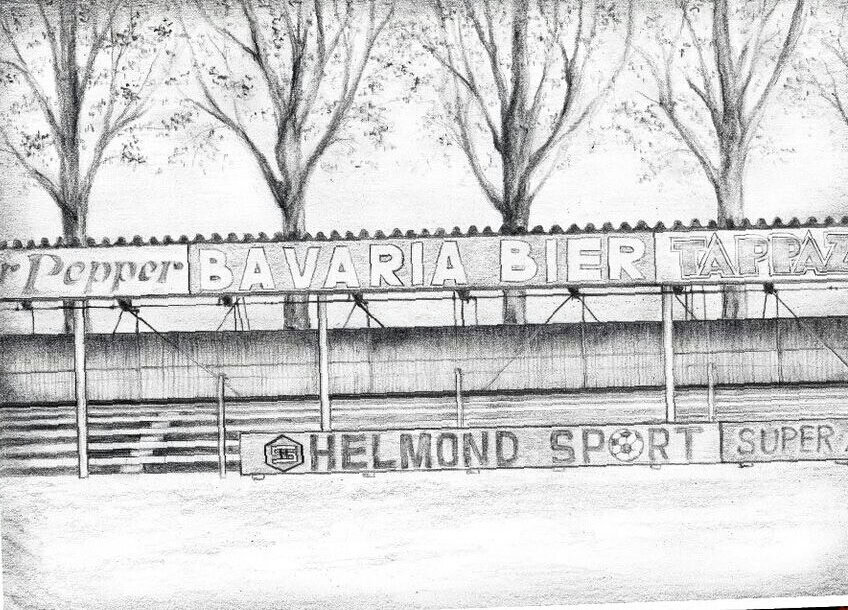 r Pepper BAVARIA BIER TAPPAZ
HELMOND SPORT SUPER